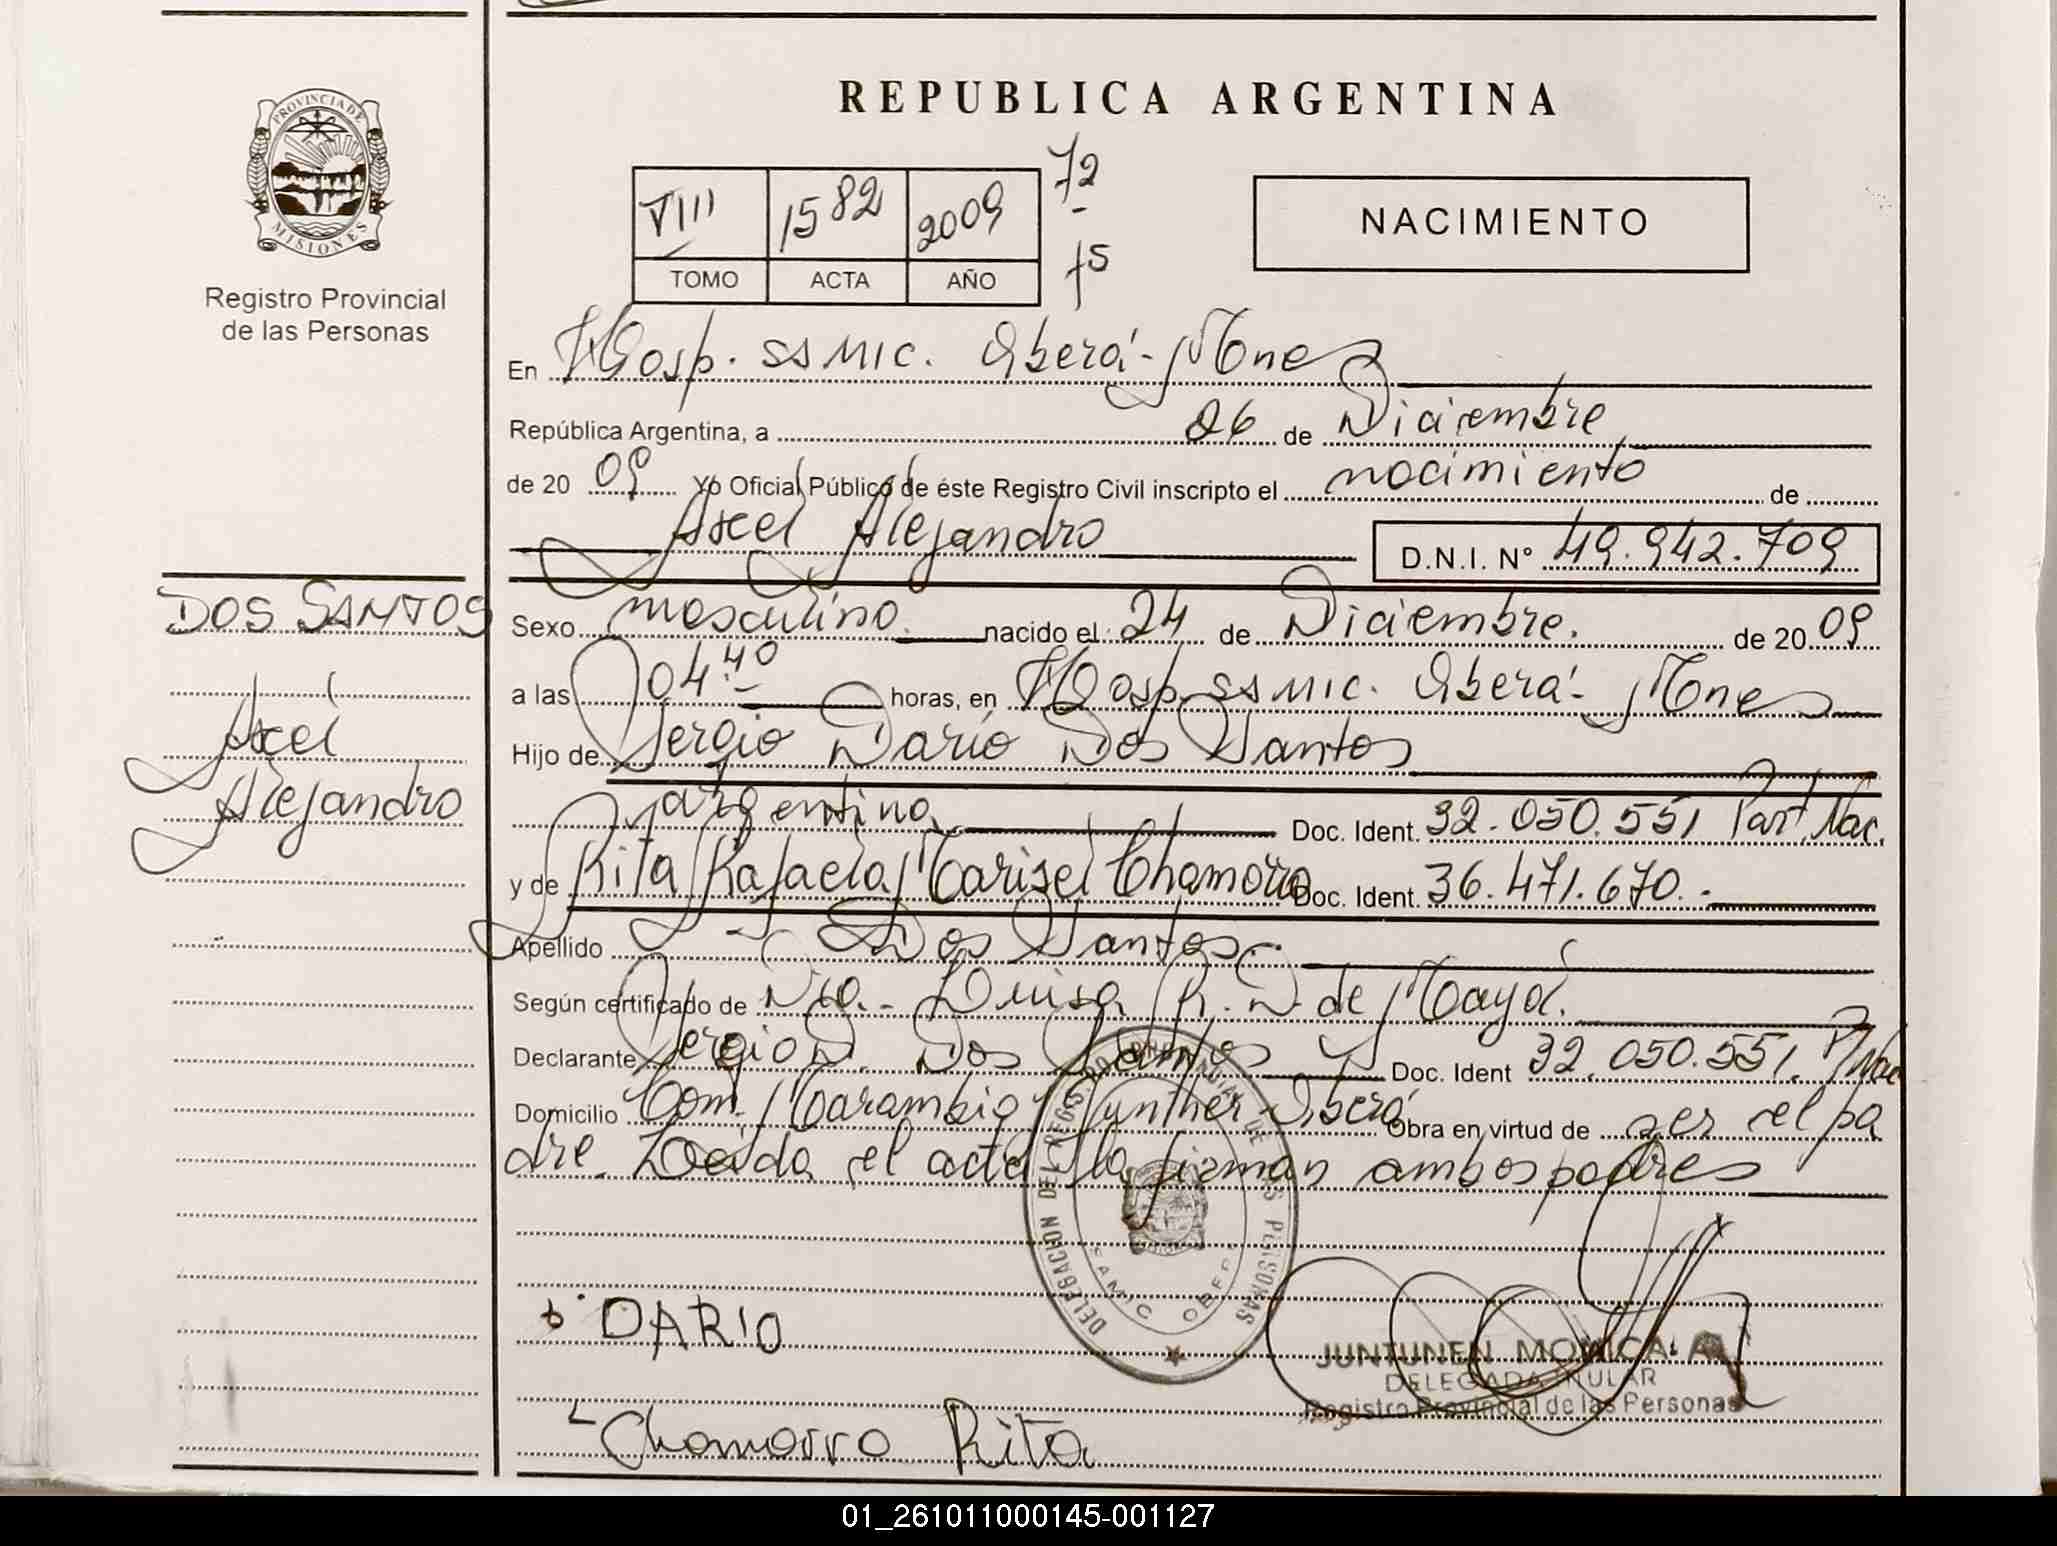 REPUBLICA ARGENTINA
PROVINCIA DE
MISIONES
Registro Provincial
de las Personas
VIII 1582 2009 72
TOMO ACTA AÑO 75
NACIMIENTO
En Hosp. SSMIC. Oberá - Mnes
República Argentina, a 26 de Diciembre
de 20 09 Yo Oficial Público de éste Registro Civil inscripto el nacimiento de
Axel Alejandro D.N.I. Nº 49.942.709
DOS SANTOS
Axel
Alejandro
Sexo masculino. nacido el 24 de Diciembre. de 20 09
a las 04:40 horas, en Hosp. SSMIC. Oberá - Mnes
Hijo de Sergio Darío Dos Santos
argentino Doc. Ident. 32.050.551 Part. Nac.
y de Rita Rafaela Marisel Chamorro Doc. Ident. 36.471.670.-
Apellido Dos Santos.-
Según certificado de Dra.- Luisa R. D. de Mayol.
Declarante Sergio D. Dos Santos Doc. Ident 32.050.551. P/Nac
Domicilio Com. Carambio Gunther - Oberá Obra en virtud de ser el pa
dre. Leída el acta la firman ambos padres
DELEGACION DEL REGISTRO PROVINCIAL DE LAS PERSONAS
SAMIC OBERA
DARIO
JUNTUNEN MONICA A
DELEGADA TITULAR
Registro Provincial de las Personas
Chamorro Rita
01_261011000145-001127